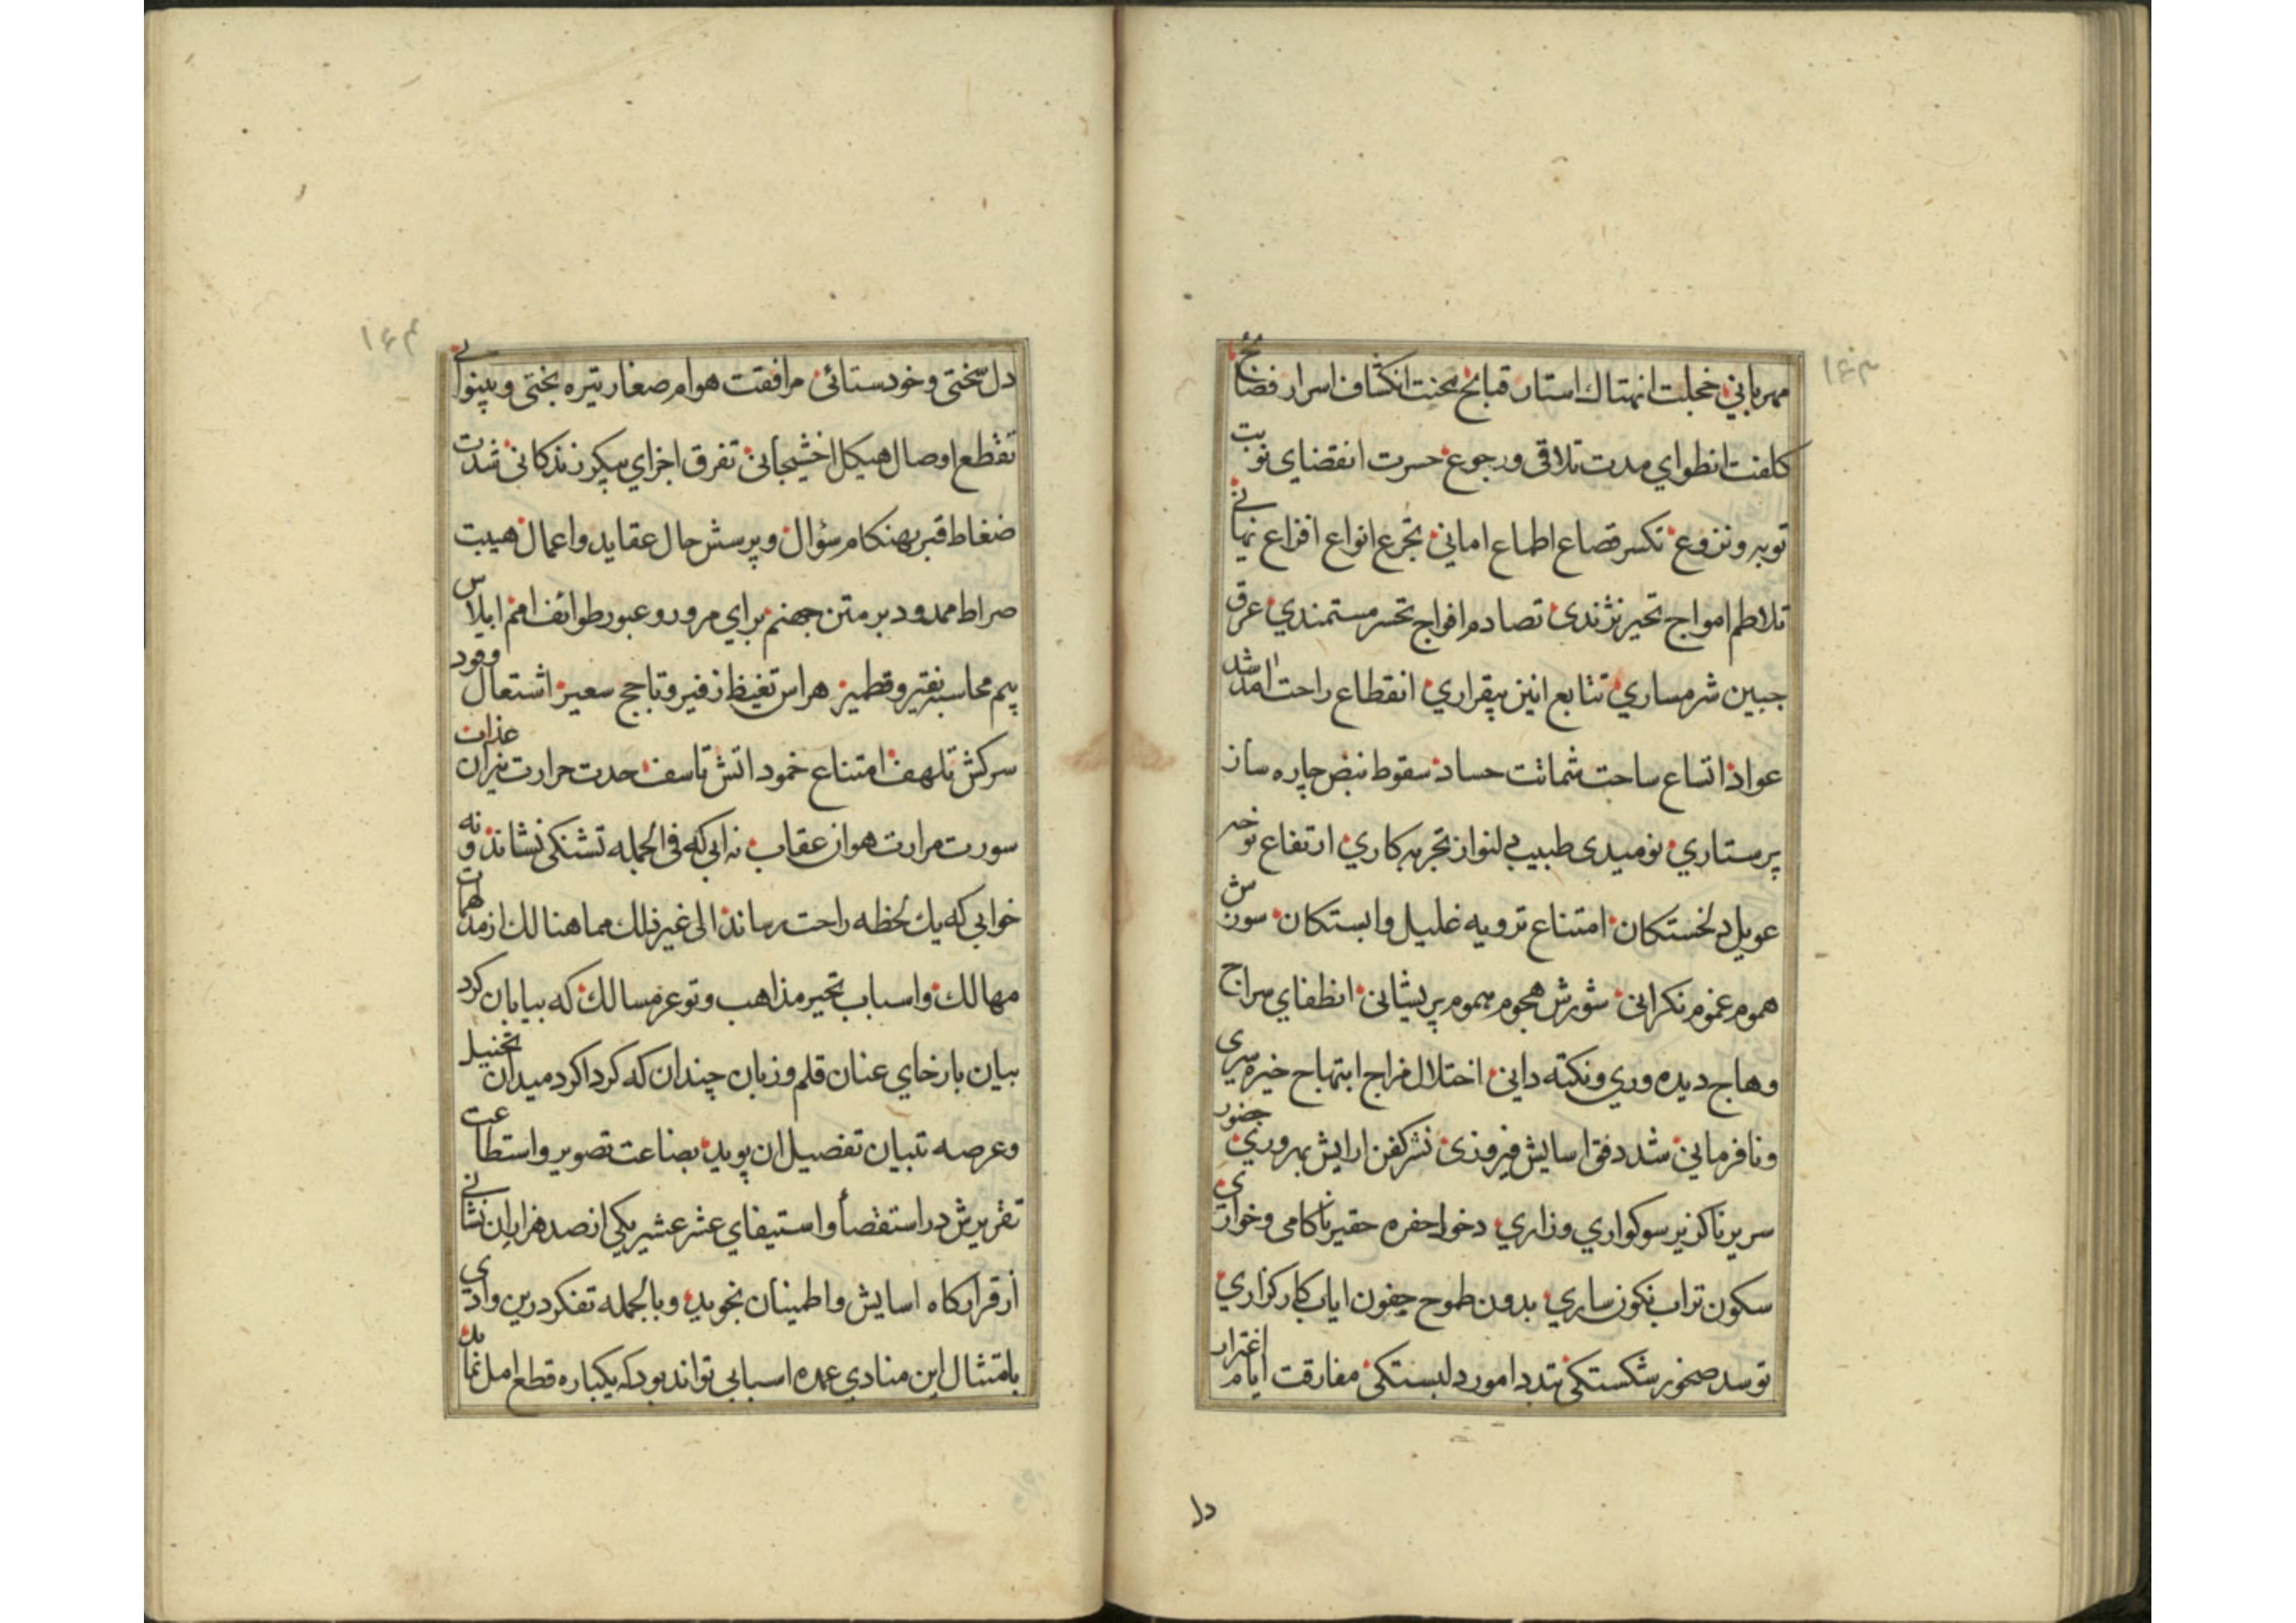 ١٤٣
مهربانی خجلت انهتاك استار قبائح محنت انكشاف اسرار فضائح
كلفت انطوای مدت تلاقی و رجوع حسرت انقضای نوبت
توبه و نزوع تكسر قصاع اطماع امانی تجرع انواع افزاع نهانی
تلاطم امواج تحیر نژندی تصادم افواج تحسر مستمندی عرق
جبین شرمساری تتابع انین بیقراری انقطاع راحت امد شد
عواد اتساع ساحت شماتت حساد سقوط نبض چاره ساز
پرستاری نومیدی طبیب دلنواز تجربه كاری ارتفاع نوحه
عویل دلخستكان امتناع ترویه غلیل وابستكان سوزش
هموم غموم نكرانی شورش هجوم سموم پریشانی انطفای سراج
وهاج دیده وری و نكته دانی اختلال مزاج ابتهاج خیره سری
و نافرمانی شد دفق اسایش فیروزی نشر كفن ارایش بهروزی حضور
سریر ناكزیر سوكواری و زاری دخول حفره حقیر ناكامی و خواری
سكون تراب نكون ساری بدون طموح جفون ایاب كاركزاری
توسد صخور شكستكی تبدد امور دلبستكی مفارقت ایام اغترار
دل
١٤٤
دل سختی و خودستائی مرافقت هوام صغار تیره بختی و بینوائی
تقطع اوصال هیكل اخشیجانی تفرق اجزای پیكر زندكانی شدت
ضغاط قبر بهنكام سؤال و پرسش حال عقاید و اعمال هیبت
صراط ممدود بر متن جهنم برای مرور و عبور طوائف امم ابلاس
بیم محاسبه نقیر و قطمیر هراس تغیظ زفیر و تاجج سعیر اشتعال وقود
سركش تلهف امتناع خمود اتش تاسف حدت حرارت نیران عذاب
سورت مرارت هوان عقاب نه ابی كه فی الجمله تشنكی نشاند و نه
خوابی كه یك لحظه راحت رساند الی غیر ذلك مما هنالك از مدلهمات
مهالك و اسباب تحیر مذاهب و توعر مسالك كه بیابان كرد
بیان بارخای عنان قلم و زبان چندان كه كرداكرد میدان تخییل
و عرصه تبیان تفصیل ان پوید بضاعت تصویر و استطاعت
تقریرش در استقصأ و استیفای عشر عشیر یكی از صد هزاران نشانی
از قراركاه اسایش و اطمینان نجوید و بالجمله تفكر درین وادی
بامتثال این منادی عمده اسبابی تواند بود كه یكباره قطع امل نماید